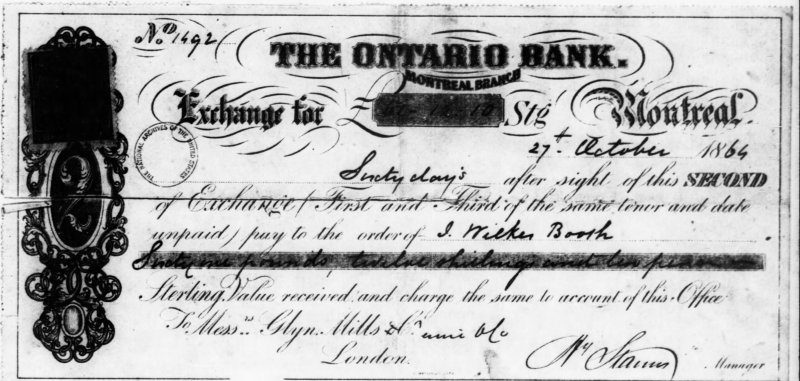 No 1492
THE ONTARIO BANK.
MONTREAL BRANCH
Exchange for £ Stg Montreal.
27t October 1864
Sixty days after sight of this SECOND
of Exchange (First and Third of the same tenor and date
unpaid) pay to the order of J. Wilkes Booth
Sixty one pounds, twelve shillings and ten pence
Sterling Value received and charge the same to account of this Office
To Messrs Glyn Mills & Co
London.
Hy Stanus Manager
THE NATIONAL ARCHIVES OF THE UNITED STATES
2